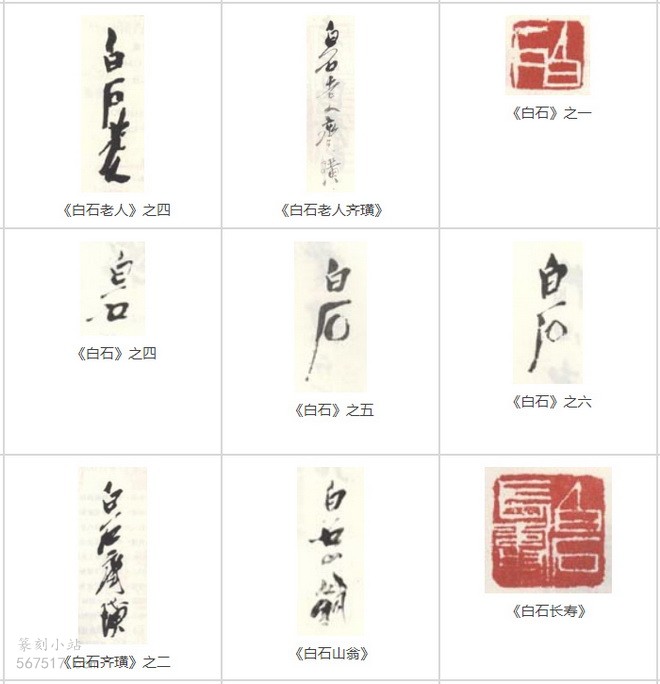 白石老人
白石老人齐璜
白石
《白石》之一
《白石老人》之四
《白石老人齐璜》
白石
白石
白石
《白石》之四
《白石》之六
《白石》之五
白石齊璜
白石山翁
白石長壽
《白石长寿》
《白石山翁》
篆刻小站
567517
《白石齐璜》之二